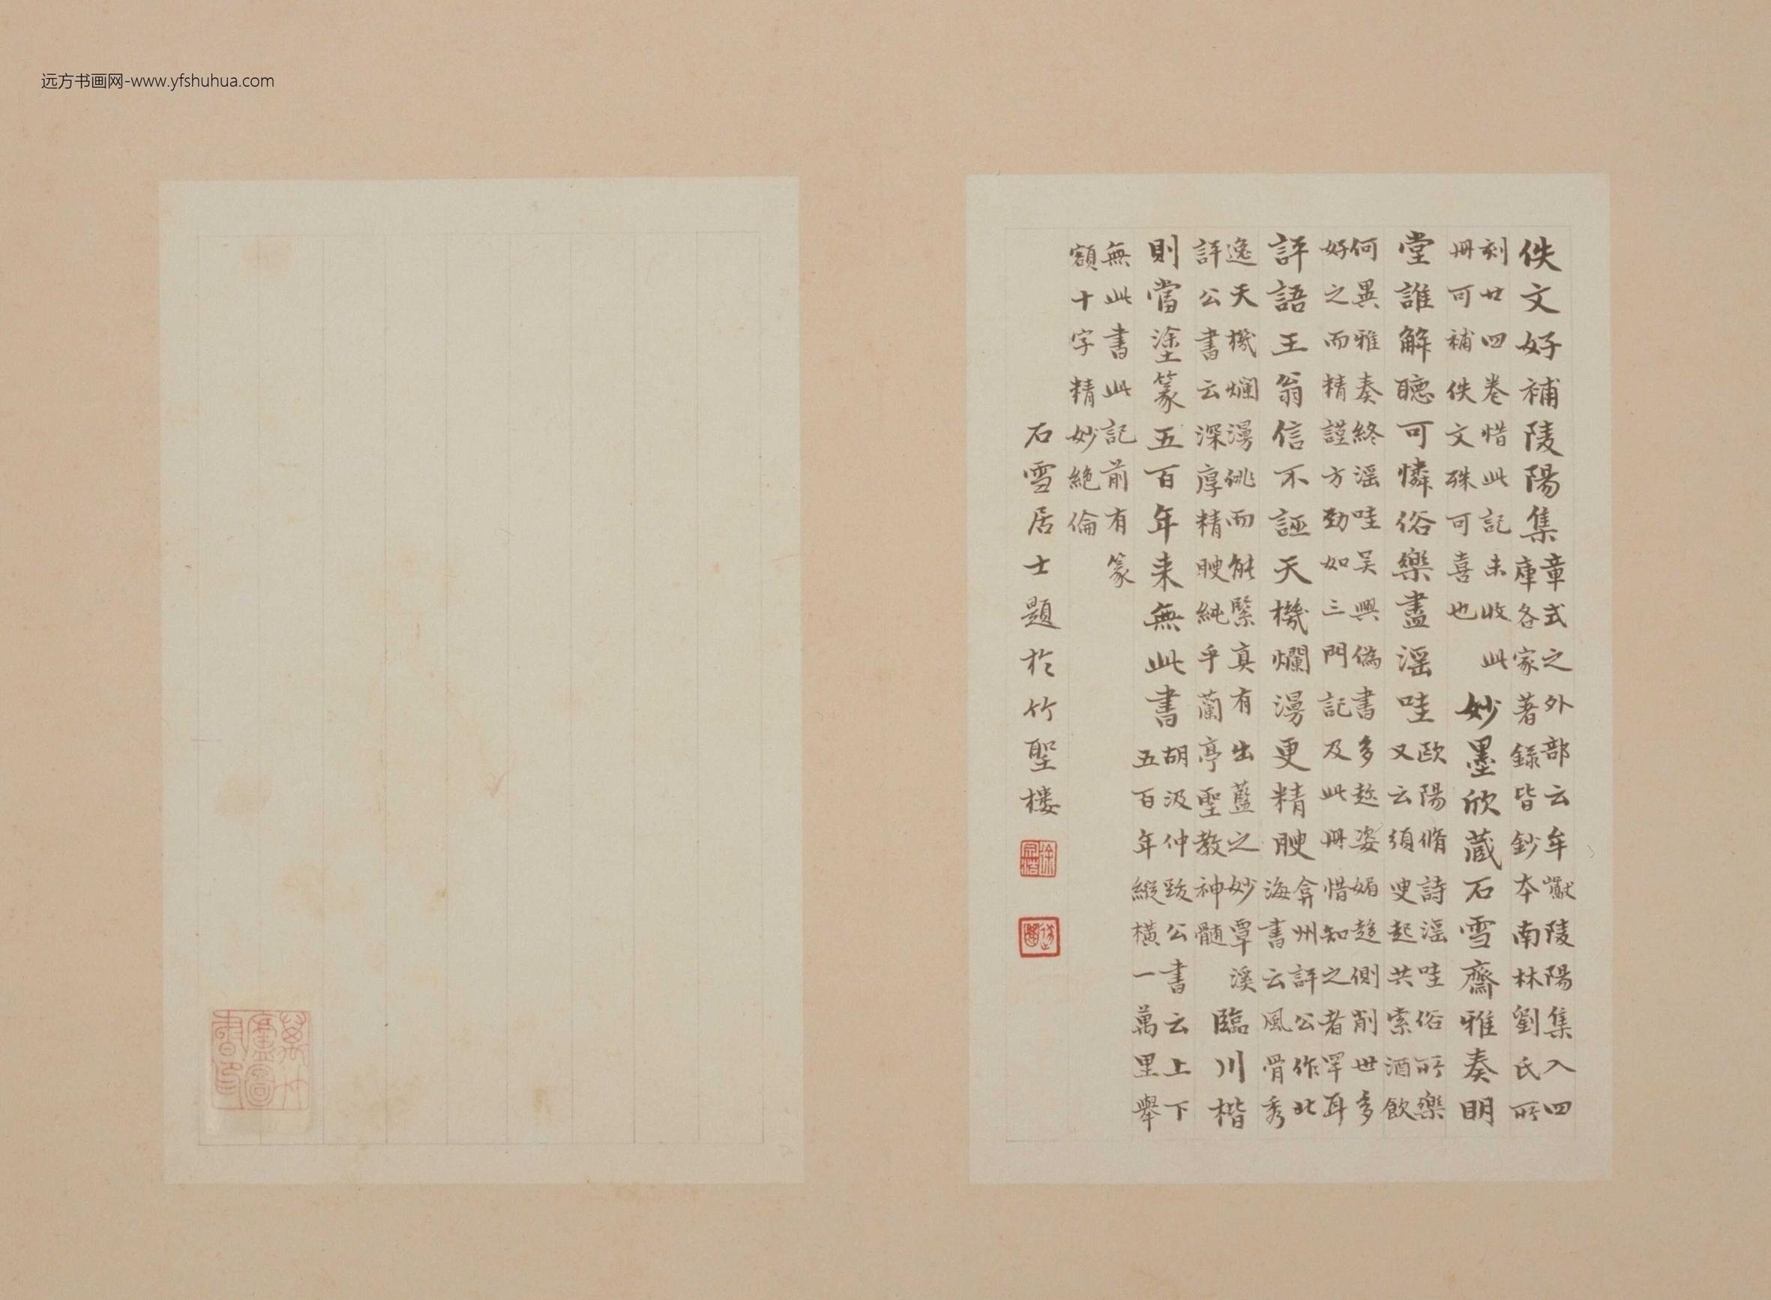 远方书画网-www.yfshuhua.com
佚文好補陵陽集
章式之外部云牟巘陵陽集入四
庫各家著錄皆鈔本南林劉氏所
刻廿四卷惜此記未收此
冊可補佚文殊可喜也
妙墨欣藏石雪齋雅奏明
堂誰解聽可憐俗樂盡滛哇
歐陽脩詩滛哇俗所樂
又云須臾起共索酒飲
何異雅奏終滛哇吳興偽書多趂姿媚側削世多
好之而精謹方勁如三門記及此冊惜知之者罕耳
評語王翁信不誣天機爛漫更精腴
弇州評公作北
海書云風骨秀
逸天機爛漫佻而能緊真有出藍之妙覃溪
評公書云深厚精腴純乎蘭亭聖教神髓
臨川楷
則當塗篆五百年来無此書
胡汲仲跋公書云上下
五百年縱橫一萬里舉
無此書此記前有篆
額十字精妙絕倫
石雪居士題於竹聖楼
徐宗浩